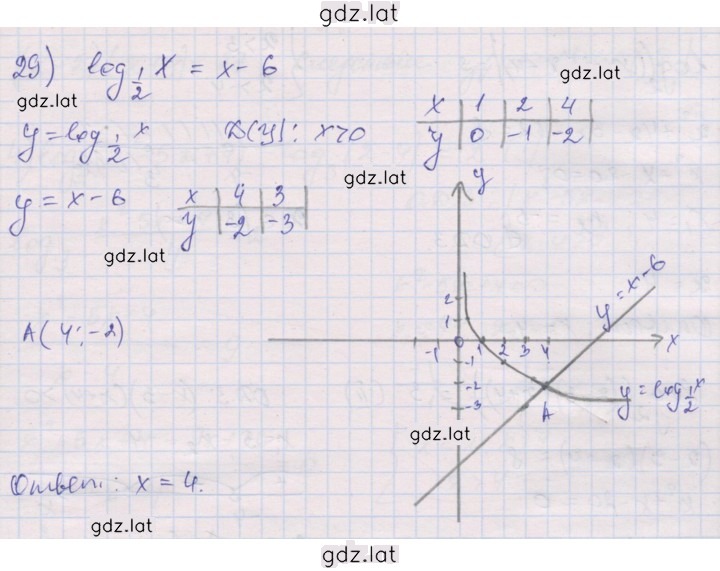 gdz.lat
29) log 1/2 x = x - 6
gdz.lat
gdz.lat
x | 1 | 2 | 4
y | 0 | -1 | -2
y = log 1/2 x D(y): x>0
gdz.lat
y = x - 6
x | 4 | 3
y | -2 | -3
gdz.lat
y
y = x - 6
2
1
A(4; -2)
-1 0 1 2 3 4 x
-1
-2
-3
A
y = log 1/2 x
gdz.lat
Ответ: x = 4.
gdz.lat
gdz.lat